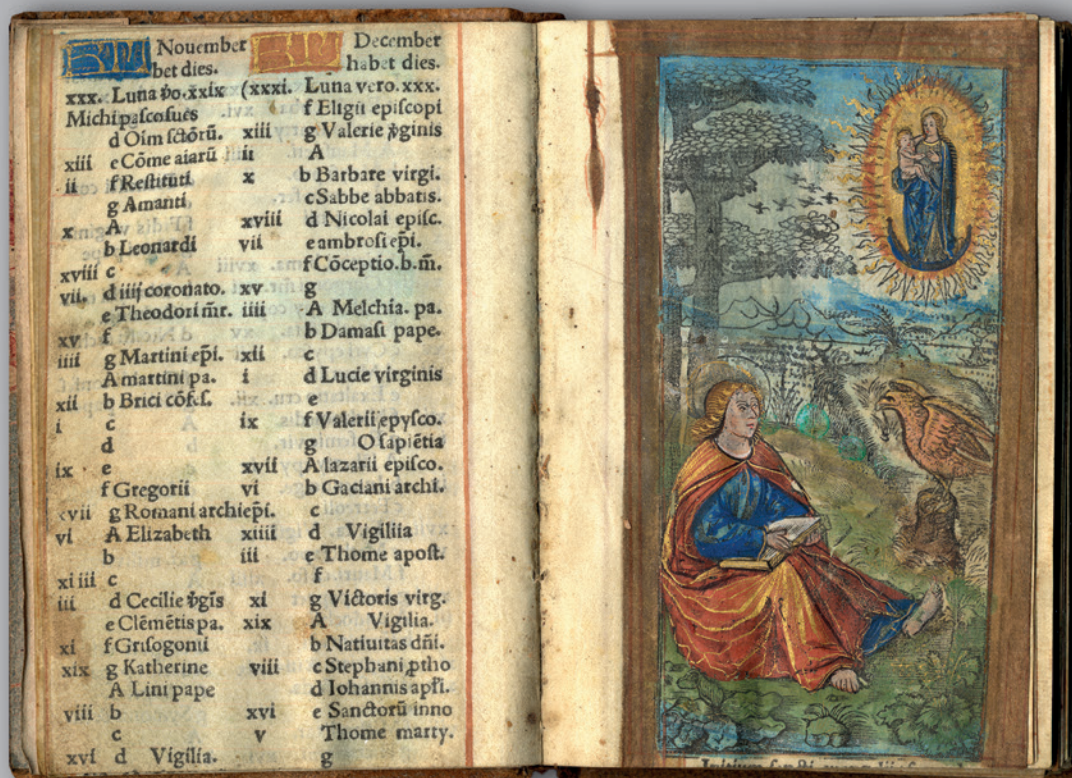 KL Nouember
habet dies.
xxx. Luna ṽo. xxix
Michi pascosues
d Oim sctōrū.
xiii e Cōme aiarū
ii f Restituti
g Amanti
x A
b Leonardi
xviii c
vii. d iiij coronato.
e Theodori m̄r.
xv f
iiii g Martini ep̄i.
A martini pa.
xii b Brici cōfes.
i c
d
ix e
f Gregorii
xvii g Romani archiep̄i.
vi A Elizabeth
b
xiiii c
iii d Cecilie ṽgīs
e Clēmētis pa.
xi f Grisogonii
xix g Katherine
A Lini pape
viii b
c
xvi d Vigilia.
KL December
habet dies.
(xxxi. Luna vero. xxx.
f Eligii episcopi
xiii g Valerie ṽginis
ii A
x b Barbare virgi.
c Sabbe abbatis.
xviii d Nicolai episc.
vii e ambrosi ep̄i.
f Cōceptio. b. m̄.
xv g
iiii A Melchia. pa.
b Damasi pape.
xii c
i d Lucie virginis
e
ix f Valerii epysco.
g O sapiētia
xvii A lazarii episco.
vi b Gaciani archi.
c
xiiii d Vigiliia
iii e Thome apost.
f
xi g Victoris virg.
xix A Vigilia.
b Natiuitas dn̄i.
viii c Stephani ꝓtho
d Iohannis apl̄i.
xvi e Sanctorū inno
v f Thome marty.
g